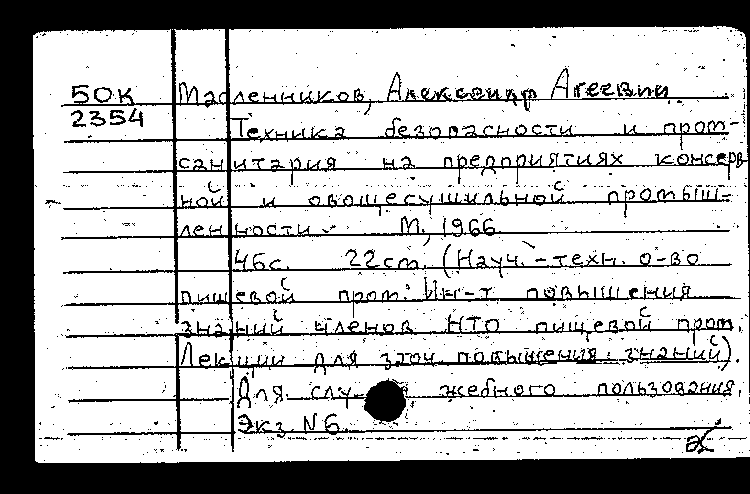 50К Масленников, Александр Агеевич
2354 Техника безопасности и пром-
санитария на предприятиях консерв
ной и овощесушильной промыш-
ленности. М., 1966
46с. 22см. (Науч.-техн. о-во
пищевой пром. Ин-т повышения
знаний членов НТО пищевой пром.
Лекции для заоч. повышения знаний).
Для служебного пользования.
Экз. N6